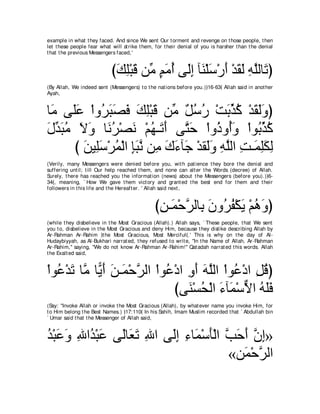 example in what they faced. And since We sent Our torment and revenge on those people, then
let these people fear what will strike them, for their denial of you is harsher than the denial
that the previous Messengers faced,'
﴿تَاللَّهِ لَقَدْ أَرْسَلْنَآ إِلَى أُمَمٍ مِّن قَبْلِكَ﴾
(By Allah, We indeed sent (Messengers) to the nations before you.)(16-63) Allah said in another
Ayah,
﴿وَلَقَدْ كُذِّبَتْ رُسُلٌ مِّن قَبْلِكَ فَصَبَرُواْ عَلَى مَا
كُذِّبُواْ وَأُوذُواْ حَتَّى أَتَـهُمْ نَصْرُنَا وَلاَ مُبَدِّلَ
لِكَلِمَـتِ اللَّهِ وَلَقدْ جَآءَكَ مِن نَّبَإِ الْمُرْسَلِينَ ﴾
(Verily, many Messengers were denied before you, with patience they bore the denial and
suffering until; till Our help reached them, and none can alter the Words (decree) of Allah.
Surely, there has reached you the information (news) about the Messengers (before you).)(6-
34), meaning, `How We gave them victory and granted the best end for them and their
followers in this life and the Hereafter.' Allah said next,
﴿وَهُمْ يَكْفُرُونَ بِالرَّحْمَـنِ﴾
(while they disbelieve in the Most Gracious (Allah).) Allah says, `These people, that We sent
you to, disbelieve in the Most Gracious and deny Him, because they dislike describing Allah by
Ar-Rahman Ar-Rahim ﴿the Most Gracious, Most Merciful﴾.' This is why on the day of Al-
Hudaybiyyah, as Al-Bukhari narrated, they refused to write, "In the Name of Allah, Ar-Rahman
Ar-Rahim," saying, "We do not know Ar-Rahman Ar-Rahim!'' Qatadah narrated this words. Allah
the Exalted said,
﴿قُلِ ادْعُواْ اللَّهَ أَوِ ادْعُواْ الرَّحْمَـنَ أَيًّا مَّا تَدْعُواْ
فَلَهُ الاٌّسْمَآءَ الْحُسْنَى﴾
(Say: "Invoke Allah or invoke the Most Gracious (Allah), by whatever name you invoke Him, for
to Him belong the Best Names.) (17:110) In his Sahih, Imam Muslim recorded that `Abdullah bin
`Umar said that the Messenger of Allah said,
«إِنَّ أَحَبَّ الْأَسْمَاءِ إِلَى اللهِ تَعَالَى عَبْدُاللهِ وَعَبْدُ
الرَّحْمَن»